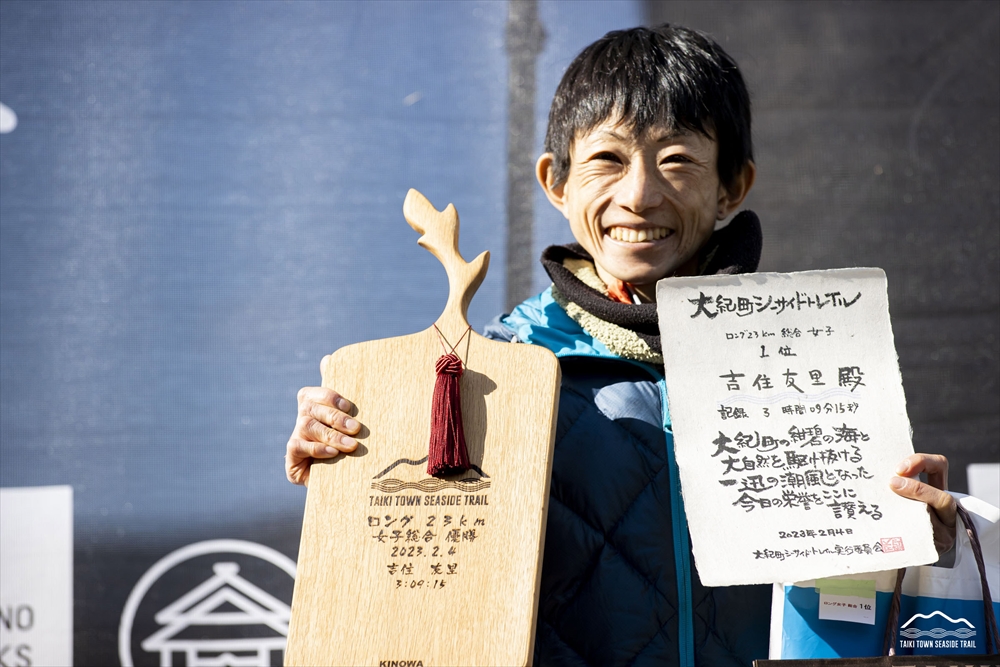 大紀町シーサイドトレイル
ロング23km 総合 女子
1位
吉住友里 殿
記録 3時間09分15秒
大紀町の紺碧の海と
大自然を駆け抜ける
一迅の潮風となった
今日の栄誉をここに
讃える
2023年2月4日
大紀町シーサイドトレイル実行委員会
TAIKI TOWN SEASIDE TRAIL
ロング 23km
女子総合 優勝
2023.2.4
吉住 友里
3:09:15
KINOWA
NO
KS
ロング女子 総合 1位
TAIKI TOWN SEASIDE TRAIL